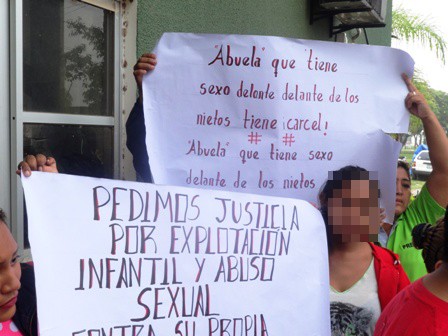 "Abuela" que tiene
sexo delonte delante de los
nietos tiene ¡carcel!
# #
"Abuela" que tiene sexo
delante de los nietos
PEDIMOS JUSTICIA
POR EXPLOTACIÓN
INFANTIL Y ABUSO
SEXUAL
CONTRA SU PROPIA